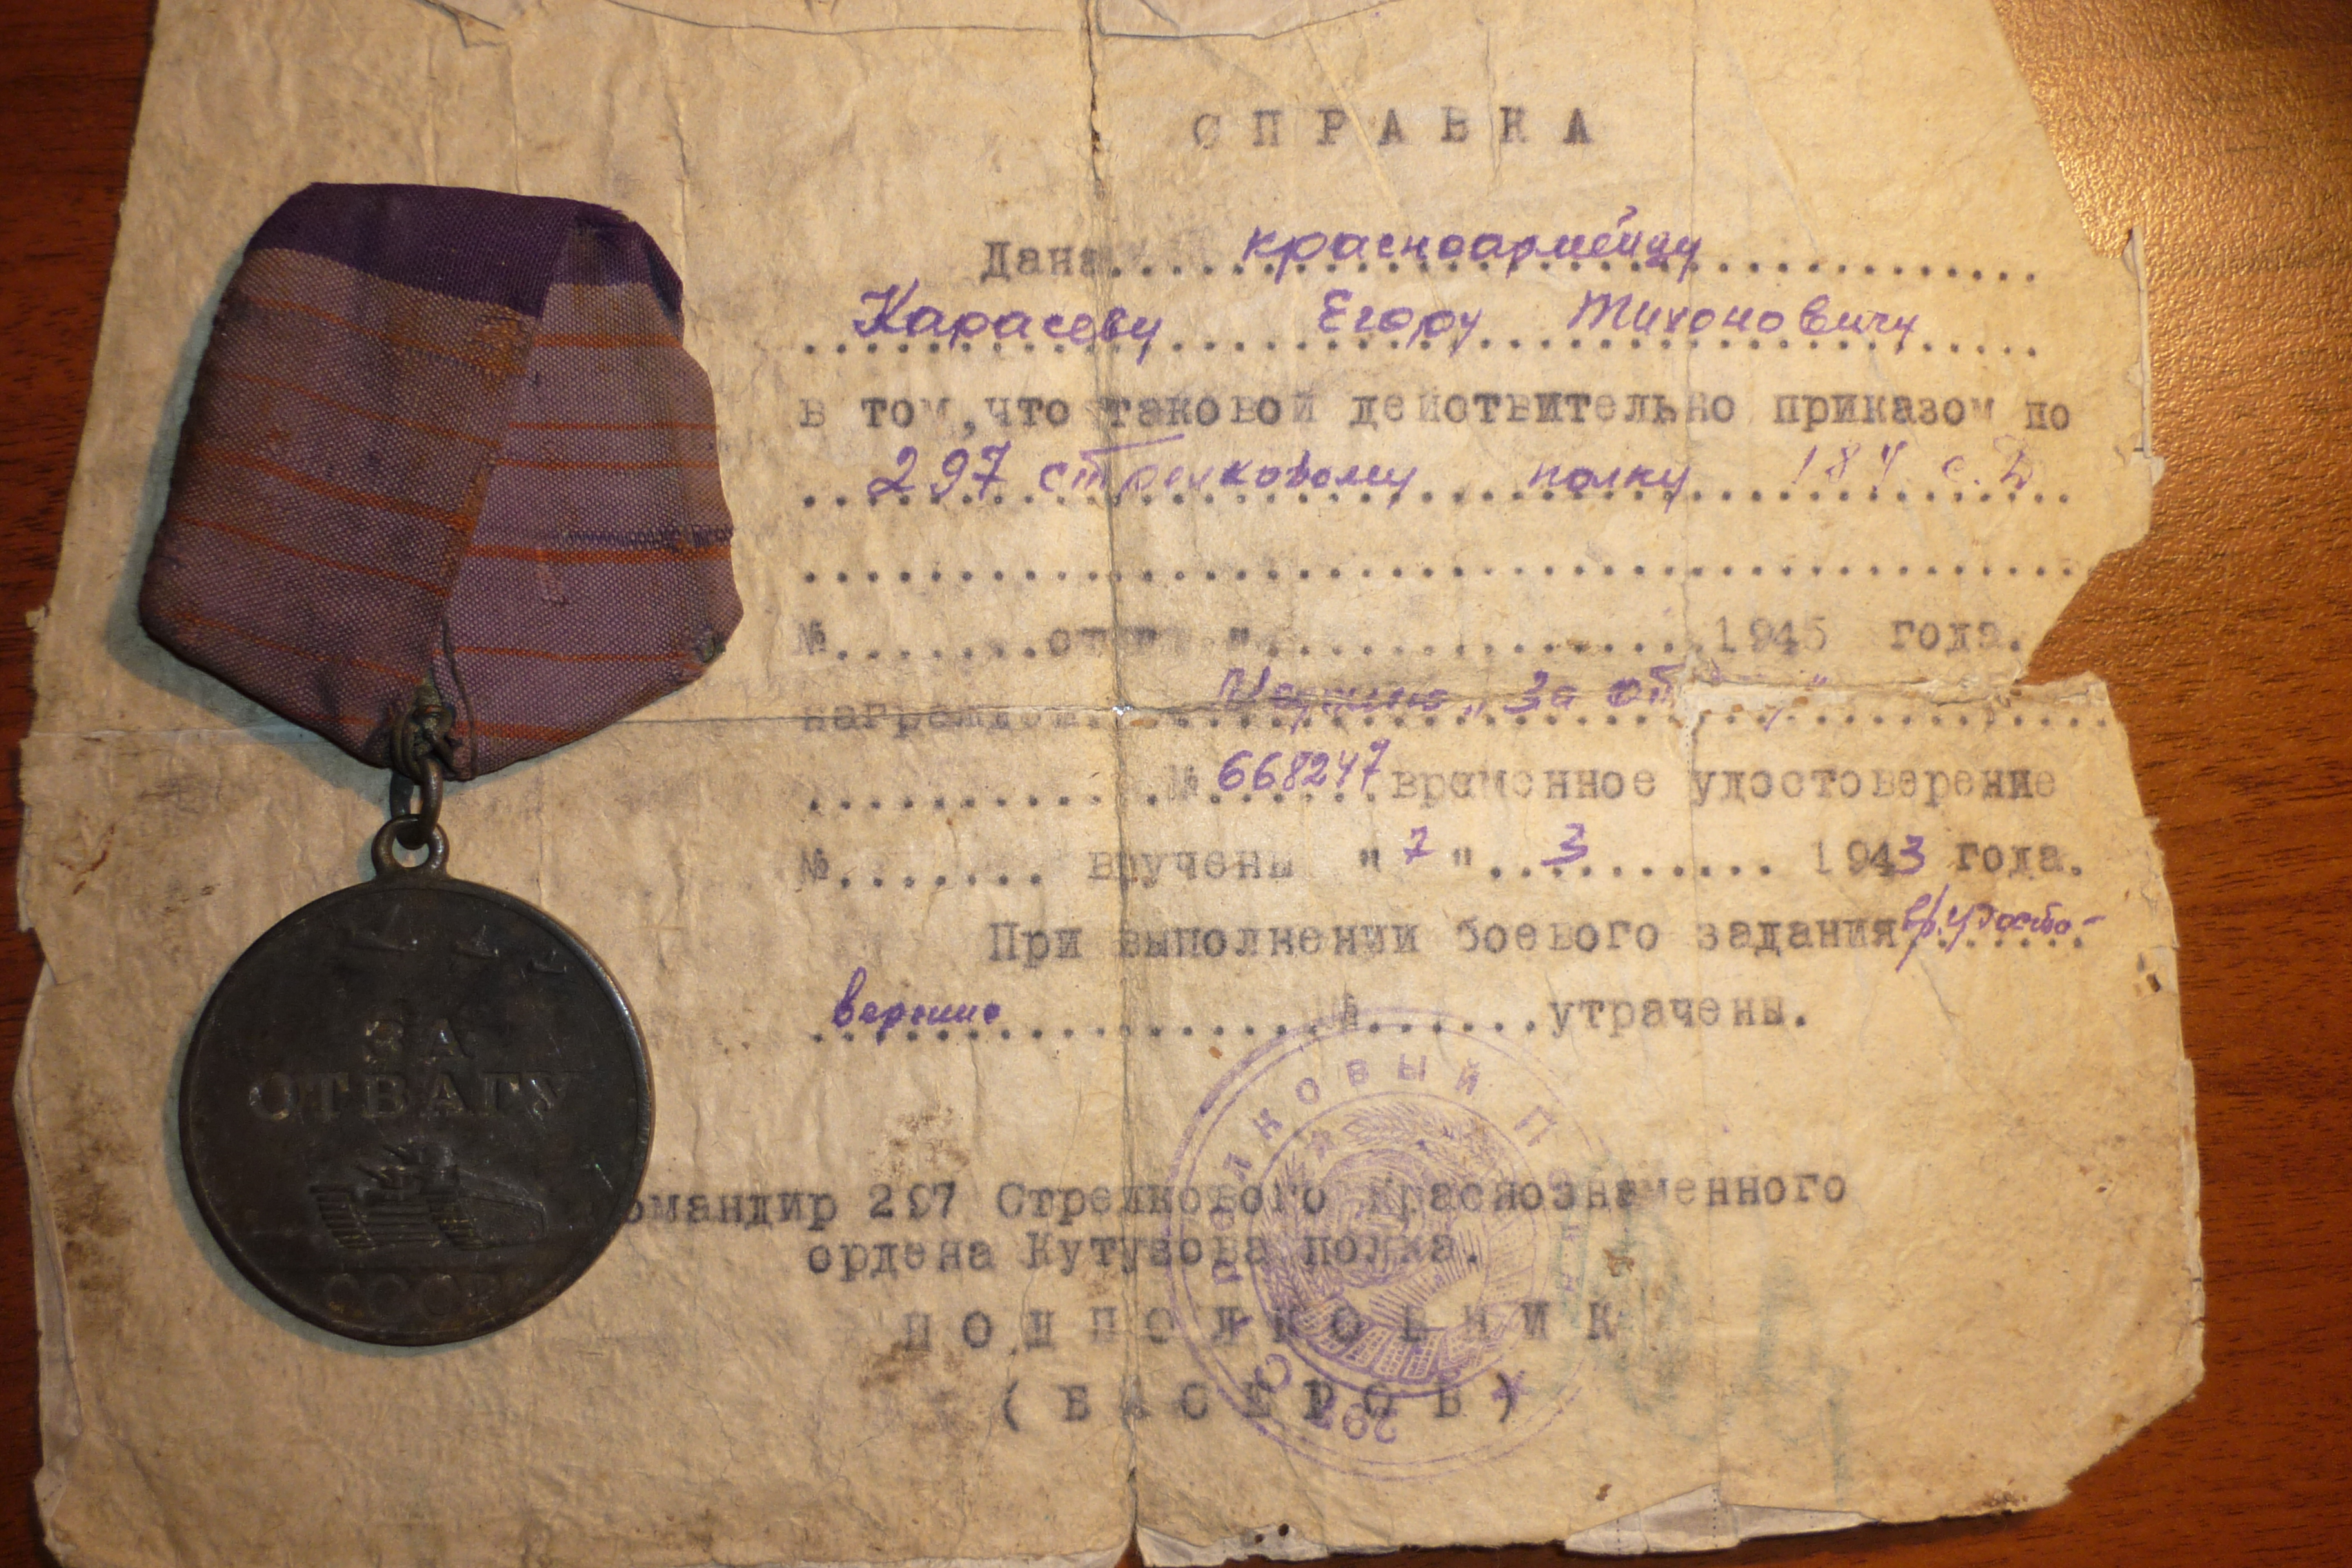 СПРАВКА
Дана красноармейцу
Карасеву Егору Тихоновичу
в том, что таковой действительно приказом по
297 стрелковому полку 184 с.Д
№ от " " 1945 года.
награжден "За от
№ 668247 временное удостоверение
№ вручены "7" 3 1943 года.
При выполнении боевого задания вр. удосто-
верение № утрачены.
омандир 297 Стрелкового Краснознаменного
ордена Кутузова полка.
ПОДПОЛКОВНИК
(БАСЕРОВ)
297 СТРЕЛКОВЫЙ П
ЗА
ОТВАГУ
СССР